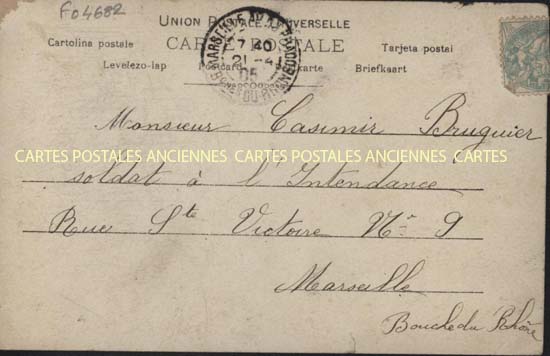 F04682
UNION POSTALE UNIVERSELLE
Cartolina postale CARTE POSTALE Tarjeta postal
Levelezo-lap Postcard Briefkaart
MARSEILLE
7 40
21 -4
05
Bches DU RHONE
Monsieur Casimir Bruguier
CARTES POSTALES ANCIENNES CARTES POSTALES ANCIENNES CARTES
soldat à l'Intendance
Rue Ste Victoire No 9
Marseille
Bouche du Rhône